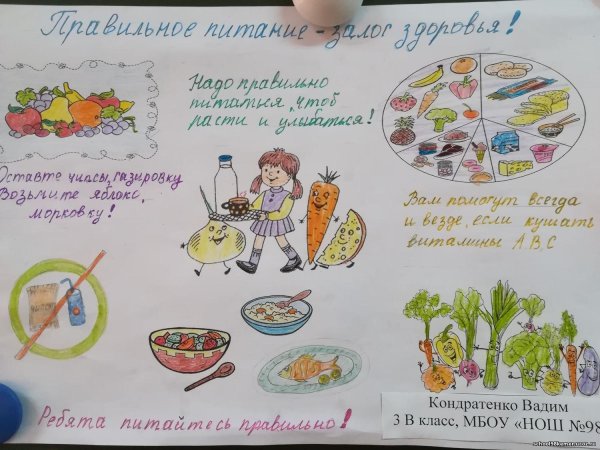 Правильное питание - залог здоровья!
Надо правильно
питаться, чтоб
расти и улыбаться!
Оставте чипсы, газировку
Возьмите яблоко,
морковку!
Вам помогут всегда
и везде, если кушать
витамины А,В,С
Ребята питайтесь правильно!
Кондратенко Вадим
3 В класс, МБОУ «НОШ №98